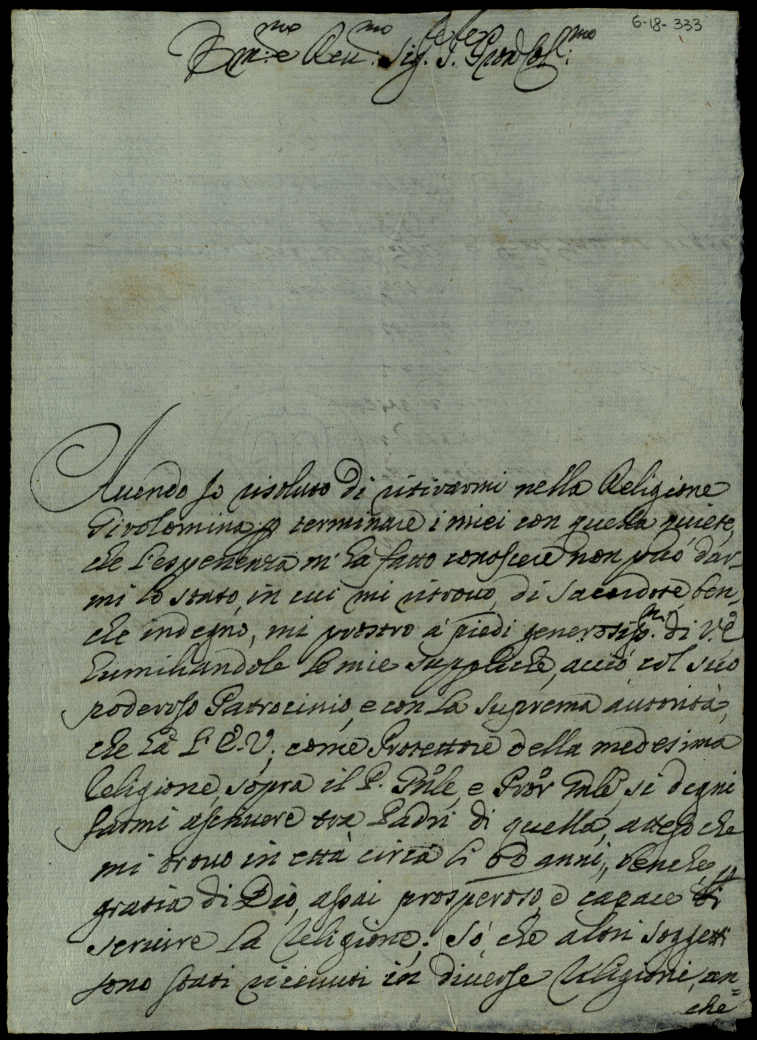 6-18-333
Em.mo e Reu.mo Sig.r S.r
Auendo Io risoluto di ritirarmi nella Religione
Girolomina p terminare i miei con quella quiete,
che l'esperienza m'ha fatto conoscere non può dar-
mi lo stato, in cui mi ritrouo, di Sacerdote, ben-
che indegno, mi prostro a' piedi generosiss.mi di V.E.
humiliandole le mie suppliche, acciò col suo
poderoso Patrocinio, e con la suprema autorità,
che hà l'E.V., come Protettore della medesima
Religione, sopra il P. Gnle, e si degni
farmi ascriuere trà Padri di quella, atteso che
mi trouo in età circa li 60 anni, benche
gratia di Dio, assai prosperoso, e capace di
seruire la Religione: Sò che altri soggetti
sono stati riceuuti in diuerse Religioni, an=
che